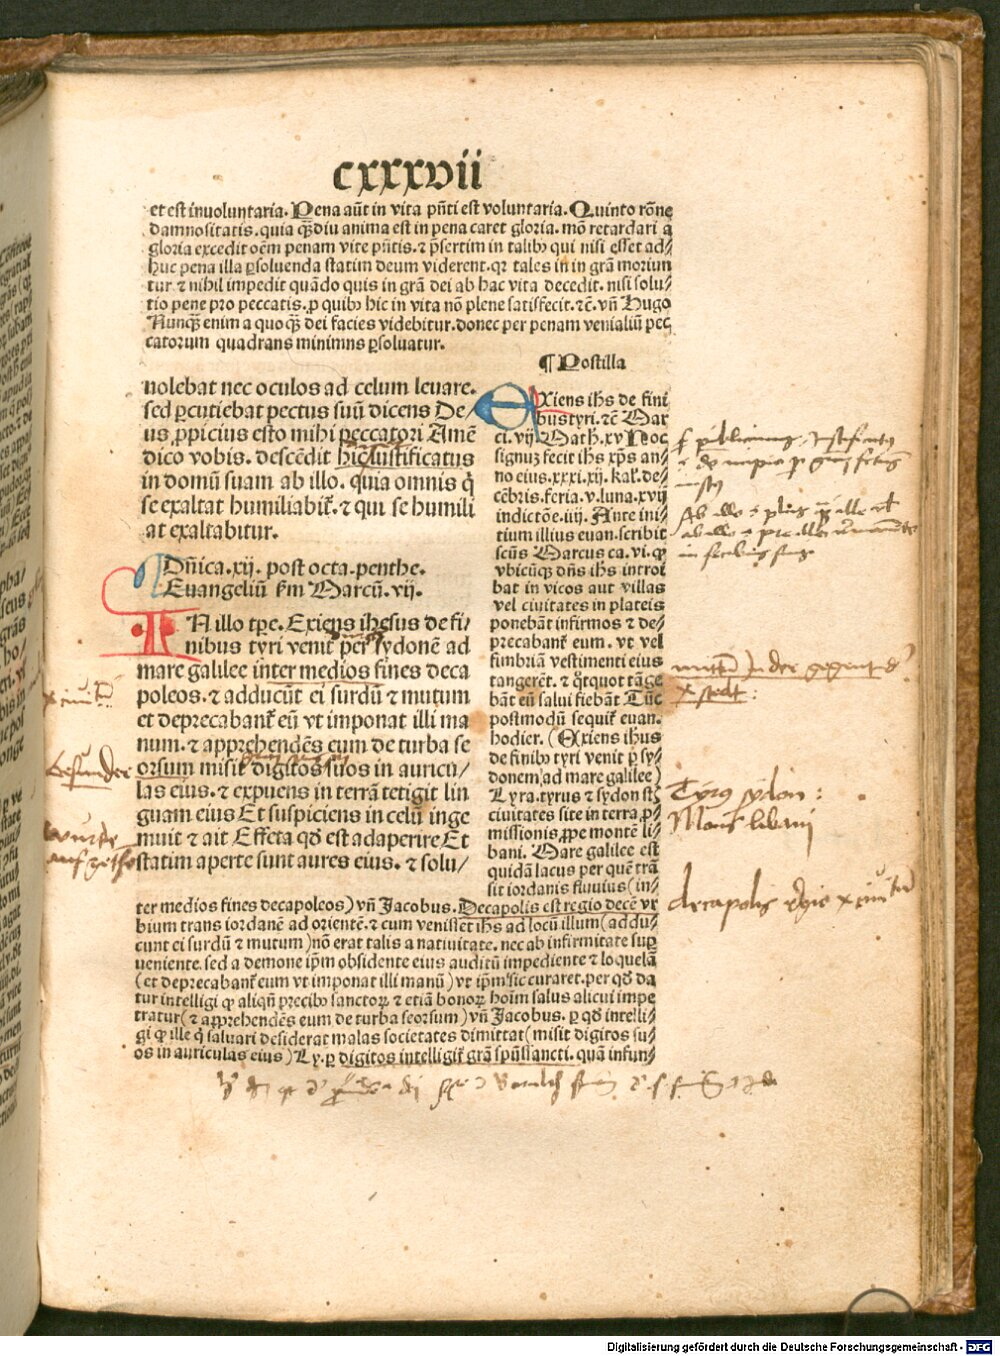 cxxxvii
et est inuoluntaria. Pena aūt in vita pn̄ti est voluntaria. Quinto rōne
damnositatis. quia qͣdiu anima est in pena caret gloria. mō retardari a
gloria excedit oēm penam vite pn̄tis. ⁊ p̄sertim in talibꝰ qui nisi esset ad⸗
huc pena illa ꝑsoluenda statim deum viderent. qꝛ tales in in grā moriun
tur ⁊ nihil impedit quādo quis in grā dei ab hac vita decedit. nisi solu⸗
tio pene pro peccatis. ꝓ quibꝰ hic in vita nō plene satisfecit. ⁊c̄. vn̄ Hugo
Nunqͣ enim a quoqͣ dei facies videbitur. donec per penam venialiū pec
catorum quadrans minimns ꝑsoluatur.
¶ Postilla
nolebat nec oculos ad celum leuare.
sed ꝑcutiebat pectus suū dicens De⸗
us ꝓpicius esto mihi peccatori Amē
dico vobis. descēdit hic iustificatus
in domū suam ab illo. quia omnis q̄
se exaltat humiliabit̄. ⁊ qui se humili
at exaltabitur.
Dn̄ica. xij. post octa. penthe.
Euangeliū ẜm Marcū. vij.
IN illo tꝑe. Exiens ihesus de fi⸗
nibus tyri venit per sydonē ad
mare galilee inter medios fines deca
poleos. ⁊ adducūt ei surdū ⁊ mutum
et deprecabant̄ eū vt imponat illi ma
num. ⁊ apprehendēs eum de turba se
orsum misit digitos suos in auricu⸗
las eius. ⁊ expuens in terrā tetigit lin
guam eius Et suspiciens in celū inge
muit ⁊ ait Effeta qd̄ est adaperire Et
statim aperte sunt aures eius. ⁊ solu⸗
EXiens ihs de fini
bus tyri. ⁊c̄ Mar
ci. vij Math. xv Hoc
signuꝫ fecit ihs xp̄s an⸗
no eius. xxxi. xij. kal. de⸗
cēbris. feria. v. luna. xvij
indictōe. iiij. Ante ini⸗
tium illius euan. scribit
scūs Marcus ca. vi. qͥ
vbicūqꝫ dn̄s ihs introi
bat in vicos aut villas
vel ciuitates in plateis
ponebāt infirmos ⁊ de⸗
precabant̄ eum. vt vel
fimbriā vestimenti eius
tangerēt. ⁊ qͦtquot tāge
bāt eū salui fiebāt Tūc
postmodū sequit̄ euan.
hodier. (Exiens ihus
de finibꝰ tyri venit ꝑ sy⸗
donem ad mare galilee)
Lyra. tyrus ⁊ sydon st̄
ciuitates site in terra ꝓ⸗
missionis ꝓpe montē li⸗
bani. Mare galilee est
quidā lacus per quē trā
sit iordanis fluuius (in⸗
ter medios fines decapoleos) vn̄ Jacobus. Decapolis est regio decē vr
bium trans iordanē ad orientē. ⁊ cum venisset ihs ad locū illum (addu⸗
cunt ei surdū ⁊ mutum) nō erat talis a natiuitate. nec ab infirmitate suꝑ
ueniente. sed a demone ip̄m obsidente eius auditū impediente ⁊ loquelā
(et deprecabant̄ eum vt imponat illi manū) vt ip̄m sic curaret. per qd̄ da
tur intelligi qͥ aliqn̄ precibꝰ sanctoꝝ ⁊ etiā bonoꝝ hoīm salus alicui impe
tratur (⁊ apprehendēs eum de turba seorsum) vn̄ Jacobus. ꝑ qd̄ intelli⸗
gi qͥ ille q̄ saluari desiderat malas societates dimittat (misit digitos su⸗
os in auriculas eius) Ly. ꝑ digitos intelligit̄ grā spūssancti. quā infun⸗
besunder
wurde
auf gethe
Tyrꝰ sydon:
Mons libani
decapolis regio x
Digitalisierung gefördert durch die Deutsche Forschungsgemeinschaft - DFG